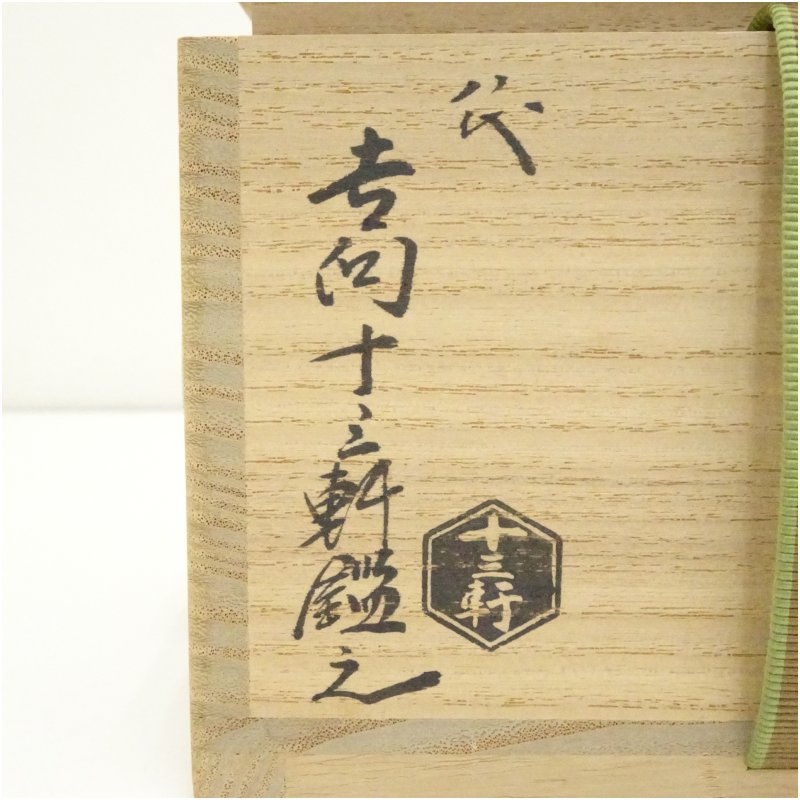 代
吉向十三軒鑑之
十三軒